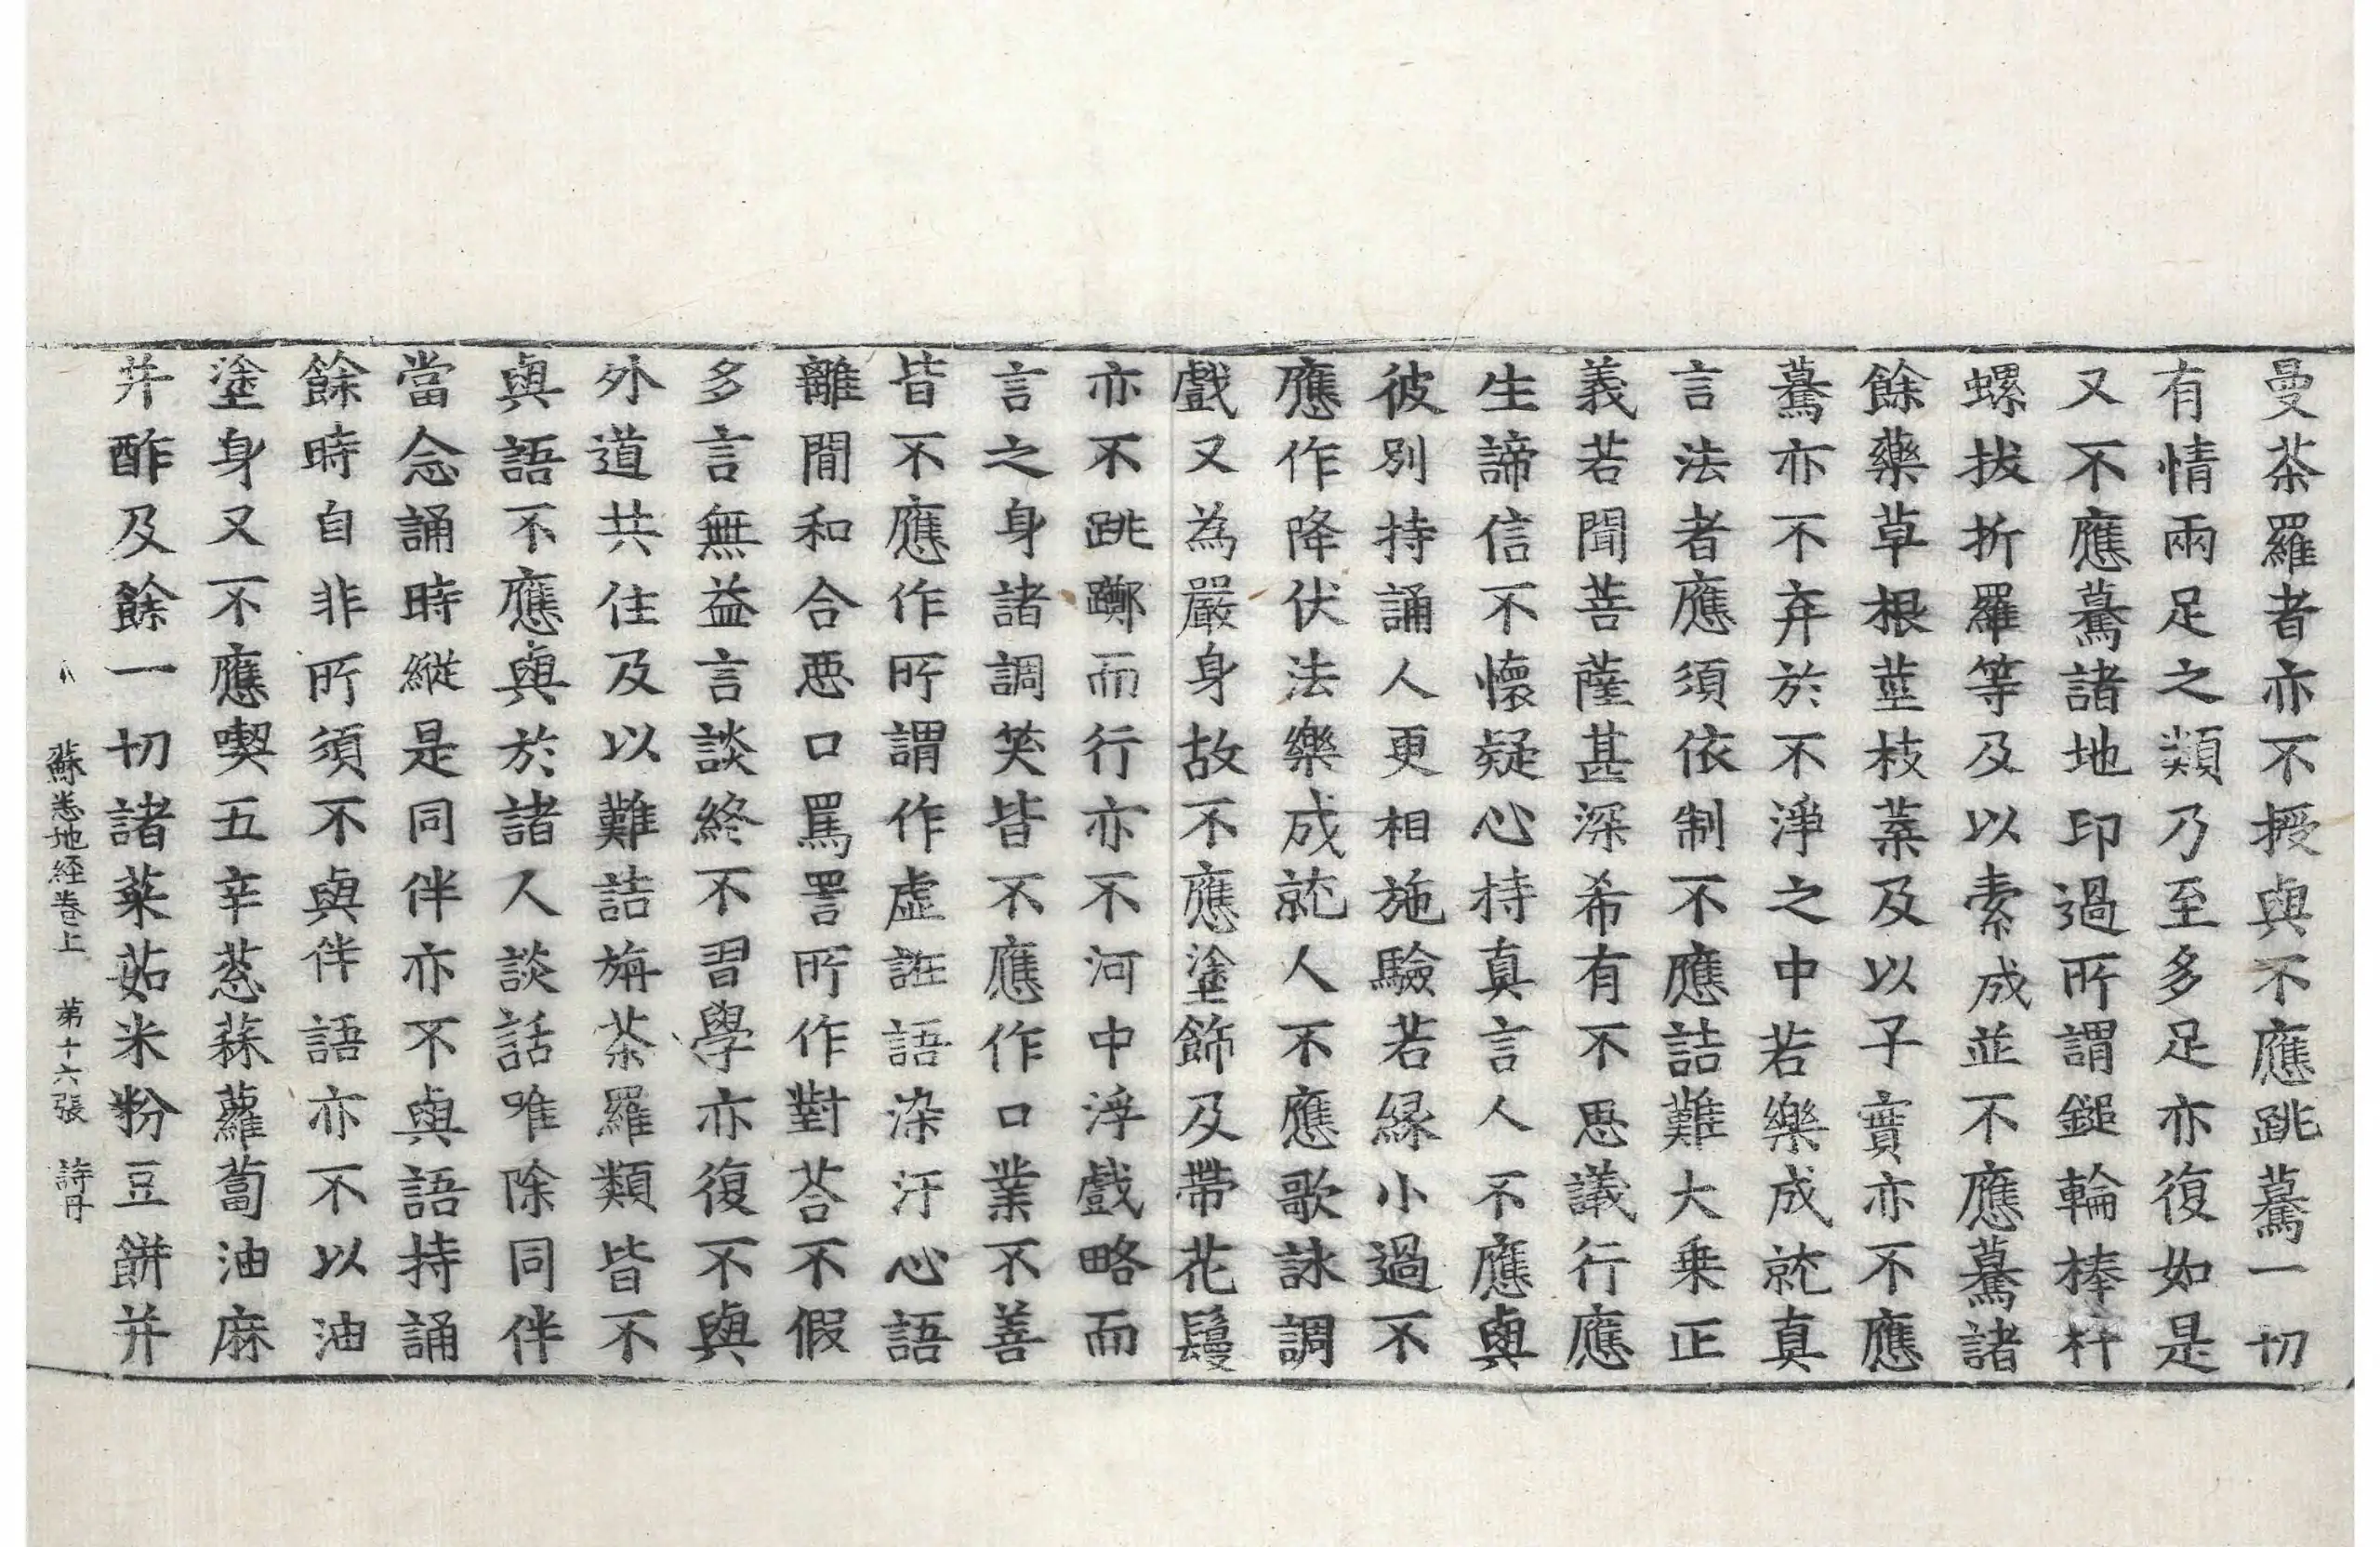 曼荼羅者亦不授與不應跳驀一切
有情兩足之類乃至多足亦復如是
又不應驀諸地印過所謂鎚輪棒杵
螺拔折羅等及以素成並不應驀諸
餘藥草根莖枝葉及以子實亦不應
驀亦不弃於不淨之中若樂成就真
言法者應須依制不應詰難大乗正
義若聞菩薩甚深希有不思議行應
生諦信不懷疑心持真言人不應與
彼別持誦人更相施驗若緣小過不
應作降伏法樂成就人不應歌詠調
戲又為嚴身故不應塗飾及帶花鬘
亦不跳躑而行亦不河中浮戲略而
言之身諸調笑皆不應作口業不善
皆不應作所謂作虛誑語染汙心語
離間和合惡口罵詈所作對荅不假
多言無益言談終不習學亦復不與
外道共住及以難詰旃荼羅類皆不
與語不應與於諸人談話唯除同伴
當念誦時縱是同伴亦不與語持誦
餘時自非所須不與伴語亦不以油
塗身又不應喫五辛葱蒜蘿蔔油麻
并酢及餘一切諸菜茹米粉豆餅并
蘇悉地経卷上 第十六張 詩丹